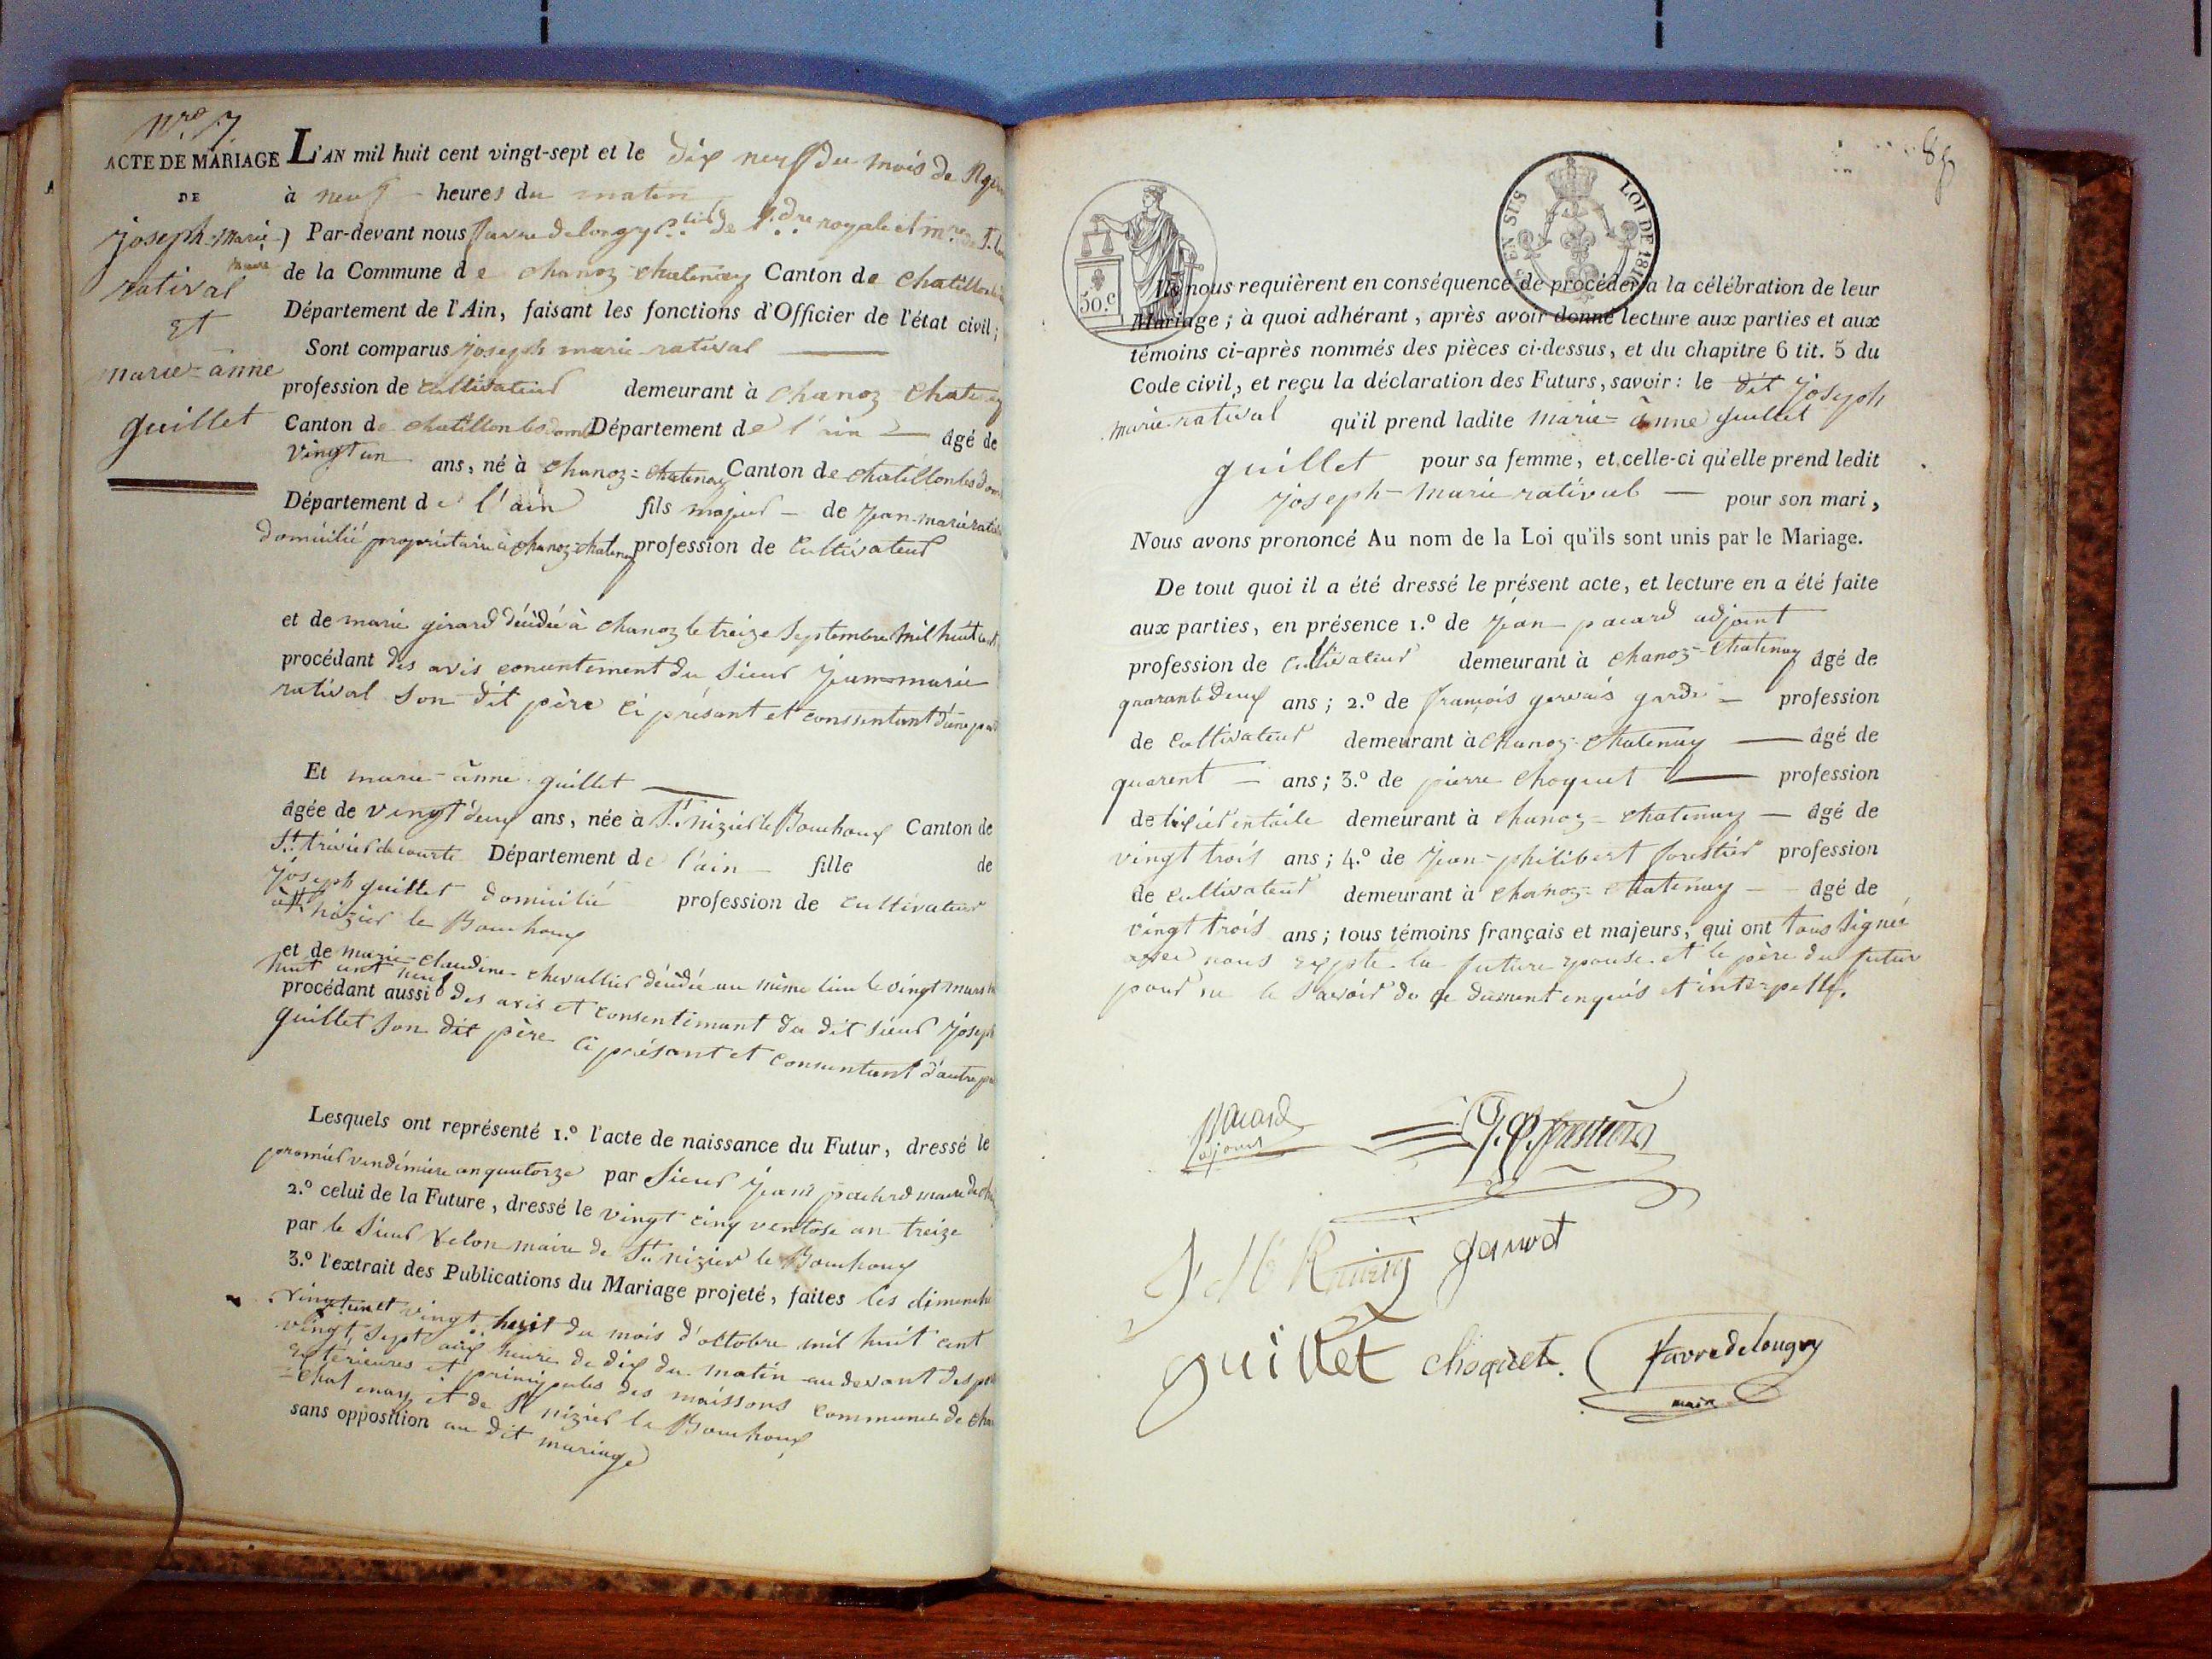 Nro 7.
ACTE DE MARIAGE
DE
joseph-Marie
ratival
et
marie-anne
guillet
L'AN mil huit cent vingt-sept et le dix neuf du mois de
à neuf heures du matin
Par-devant nous favre delongry de royale et
maire de la Commune de chanoz chatenay Canton de chatillon
Département de l'Ain, faisant les fonctions d'Officier de l'état civil;
Sont comparus joseph marie ratival
profession de cultivateur demeurant à chanoz chatenay
Canton de chatillon les dom Département de l'ain âgé de
vingt un ans, né à chanoz=chatenay Canton de chatillon les dom
Département de l'ain fils majeur de jean-marie ratival
domicilié propriétaire à chanoz-chatenay profession de cultivateur
et de marie girard décédée à chanoz le treize septembre mil huit cent
procédant des avis consentement du sieur jean-marie
ratival son dit père ci présant et consentant d'une part
Et marie-anne guillet
âgée de vingt deux ans, née à St nizier le Bouchoux Canton de
St trivier de courte Département de l'ain fille de
joseph guillet domicilié profession de cultivateur
à St nizier le Bouchoux
et de marie-claudine chevallier décédée au même lieu le vingt mars mil
huit cent neuf
procédant aussi des avis et consentimant du dit sieur joseph
guillet son dit père ci présant et consentant d'autre part
Lesquels ont représenté 1.º l'acte de naissance du Futur, dressé le
premier vendémiere an quatorze par sieur jean pacard maire de
2.º celui de la Future, dressé le vingt cinq ventose an treize
par le sieur velon maire de St nizier le Bouchoux
3.º l'extrait des Publications du Mariage projeté, faites les dimenche
vingt un et vingt huit du mois d'octobre mil huit cent
vingt sept aux heure de dix du matin au devant des portes
extérieures et principales des maissons communes de chanoz
=chatenay et de St nizier le Bouchoux
sans opposition au dit mariage
88
50.c
EN SUS
LOI DE 1816
Ils nous requièrent en conséquence de procéder à la célébration de leur
Mariage; à quoi adhérant, après avoir donné lecture aux parties et aux
témoins ci-après nommés des pièces ci-dessus, et du chapitre 6 tit. 5 du
Code civil, et reçu la déclaration des Futurs, savoir: le dit joseph
marie ratival qu'il prend ladite marie=anne guillet
guillet pour sa femme, et celle-ci qu'elle prend ledit
joseph-marie ratival pour son mari,
Nous avons prononcé Au nom de la Loi qu'ils sont unis par le Mariage.
De tout quoi il a été dressé le présent acte, et lecture en a été faite
aux parties, en présence 1.º de jean pacard adjoint
profession de cultivateur demeurant à chanoz-chatenay âgé de
quarante deux ans; 2.º de françois gervais garde profession
de cultivateur demeurant à chanoz-chatenay âgé de
quarent ans; 3.º de pierre choquet profession
de tixier en toile demeurant à chanoz=chatenay âgé de
vingt trois ans; 4.º de jean-philibert forestier profession
de cultivateur demeurant à chanoz=chatenay âgé de
vingt trois ans; tous témoins français et majeurs, qui ont tous signés
avec nous expté la future epouse et le père du futur
pour ne le savoir de ce dument enquis et interpellé.
pacard
ajoint
J.P. forestier
J M
guillet
choquet.
favre delongry
maire